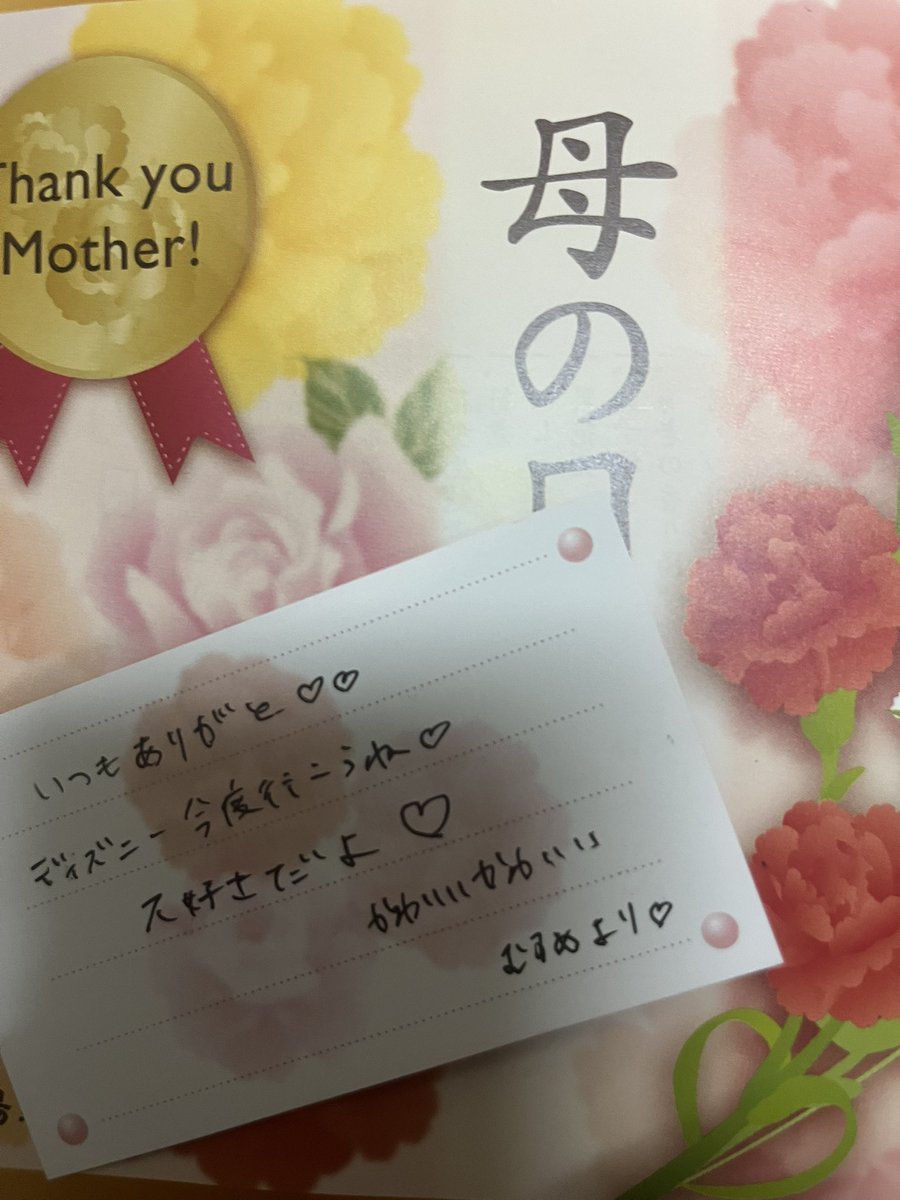 Thank you
Mother!
母の日
いつもありがと♡♡
ディズニー今度行こうね♡
大好きだよ♡
かわいいかわいい
むすめより♡